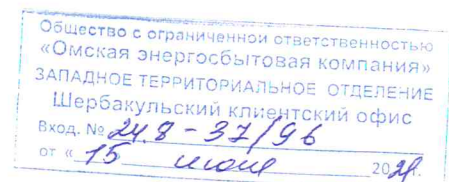 Общество с ограниченной ответственностью
«Омская энергосбытовая компания»
ЗАПАДНОЕ ТЕРРИТОРИАЛЬНОЕ ОТДЕЛЕНИЕ
Шербакульский клиентский офис
Вход. № 24.8 - 37/96
от « 15 июля 2021.